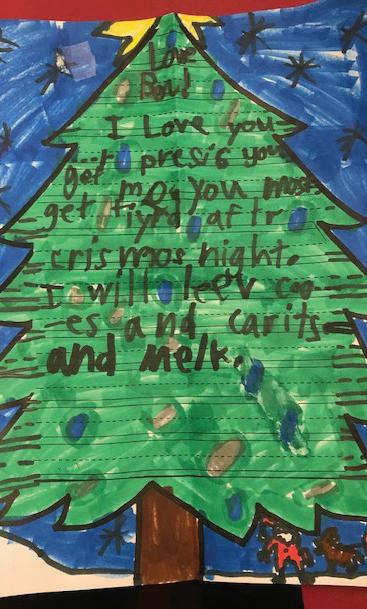 Love
I Love you
presis you
get me you most
get tiyrd aftr
crismos night.
I will leev coo
-es and carits
and melk.